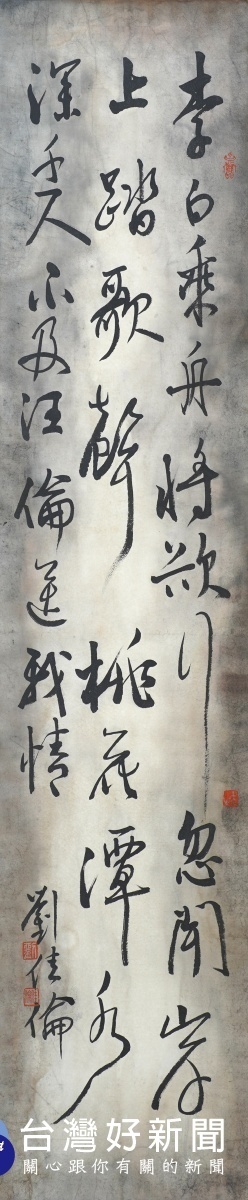 李白乘舟將欲行忽聞岸
上踏歌聲桃花潭水
深千尺不及汪倫送我情
劉佳倫
台灣好新聞
關心跟你有關的新聞